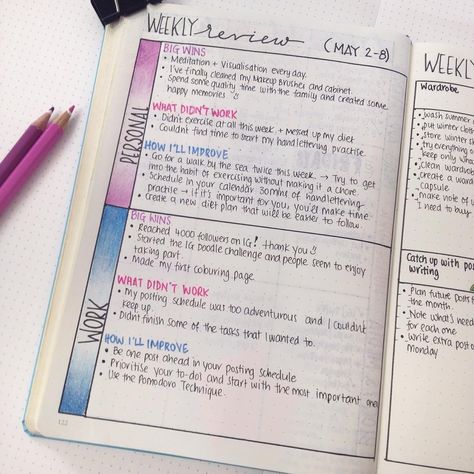 WEEKLY review (MAY 2-8)
PERSONAL
BIG WINS
• Meditation + Visualisation every day.
• I've finally cleaned my Makeup Brushes and cabinet.
• Spend some quality time with the family and created some
happy memories
WHAT DIDN'T WORK
• Didn't exercise at all this week + messed up my diet
• Couldn't find time to start my handlettering practise.
HOW I'LL IMPROVE
• Go for a walk by the sea twice this week → Try to get
into the habit of exercising without making it a chore.
• Schedule in your calendar 30mins of handlettering
practise → if it's important for you, you'll make time
• Create a new diet plan that will be easier to follow.
WORK
BIG WINS
• Reached 4000 followers on IG! thank you
• Started the IG Doodle challenge and people seem to enjoy
taking part.
• Made my first colouring page.
WHAT DIDN'T WORK
• My posting schedule was too adventurous and I couldn't
keep up.
• Didn't finish some of the tasks that I wanted to.
HOW I'LL IMPROVE
• Be one post ahead in your posting schedule
• Prioritise your to-dos and start with the most important one
• Use the Pomodoro Technique.
122
WEEKLY
Wardrobe
• wash summer
• put winter
• store winter
• try everything
keep only
• clean wardrobe
• create a
capsule
• make note of
I need to buy
Catch up with
writing
• Plan future posts
the month.
• Note what's need
for each one
• Write extra post
monday